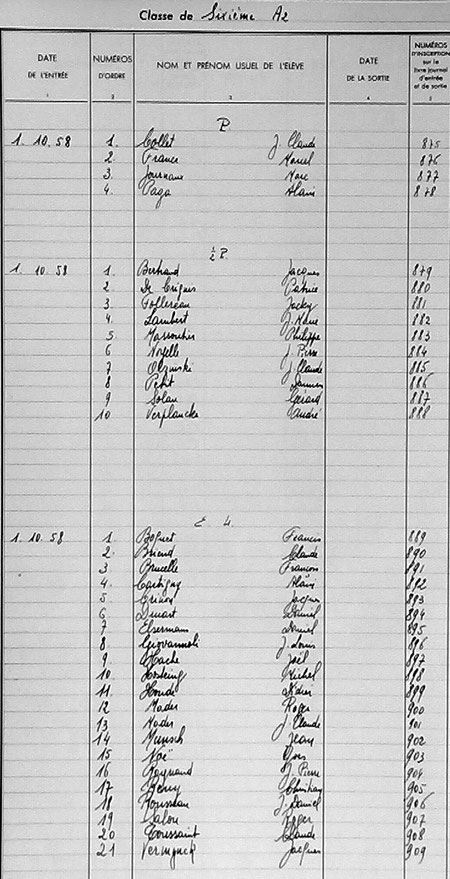 Classe de Sixième A2
DATE DE L'ENTRÉE NUMÉROS D'ORDRE NOM ET PRÉNOM USUEL DE L'ÉLÈVE DATE DE LA SORTIE NUMÉROS D'INSCRIPTION sur le livre journal d'entrée et de sortie
1 2 3 4 5
P
1. 10. 58 1. Collet J. Claude 875
2. France Marcel 876
3. Marc 877
4. Page Alain 878
½ P.
1. 10. 58 1. Bertrand Jacques 879
2 Patrice 880
3. Follereau Jacky 881
4. Lambert J. Marie 882
5 Philippe 883
6 Noyelle J. Pierre 884
7 J. Claude 885
8 Petit 886
9 Solau Gérard 887
10 Verplancke André 888
E 4
1. 10. 58 1. Boquet Francis 889
2. Briend Claude 890
3 Brucelle François 891
4. Cartigny Alain 892
5 Jacques 893
6 Dinart Daniel 894
7 Elsermans Daniel 895
8 Giovannoli J. Louis 896
9 Hache Joël 897
10 Michel 898
11 Houde Didier 899
12 Mader Roger 900
13 Mader J. Claude 901
14 Munsch Jean 902
15 Noë 903
16 Raynaud J. Pierre 904
17 Rémy Christian 905
18 Rousseau J. Daniel 906
19 Salou Roger 907
20 Toussaint Claude 908
21 Jacques 909